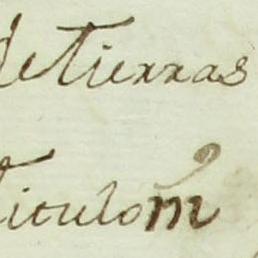 de Tierras
Titulo m